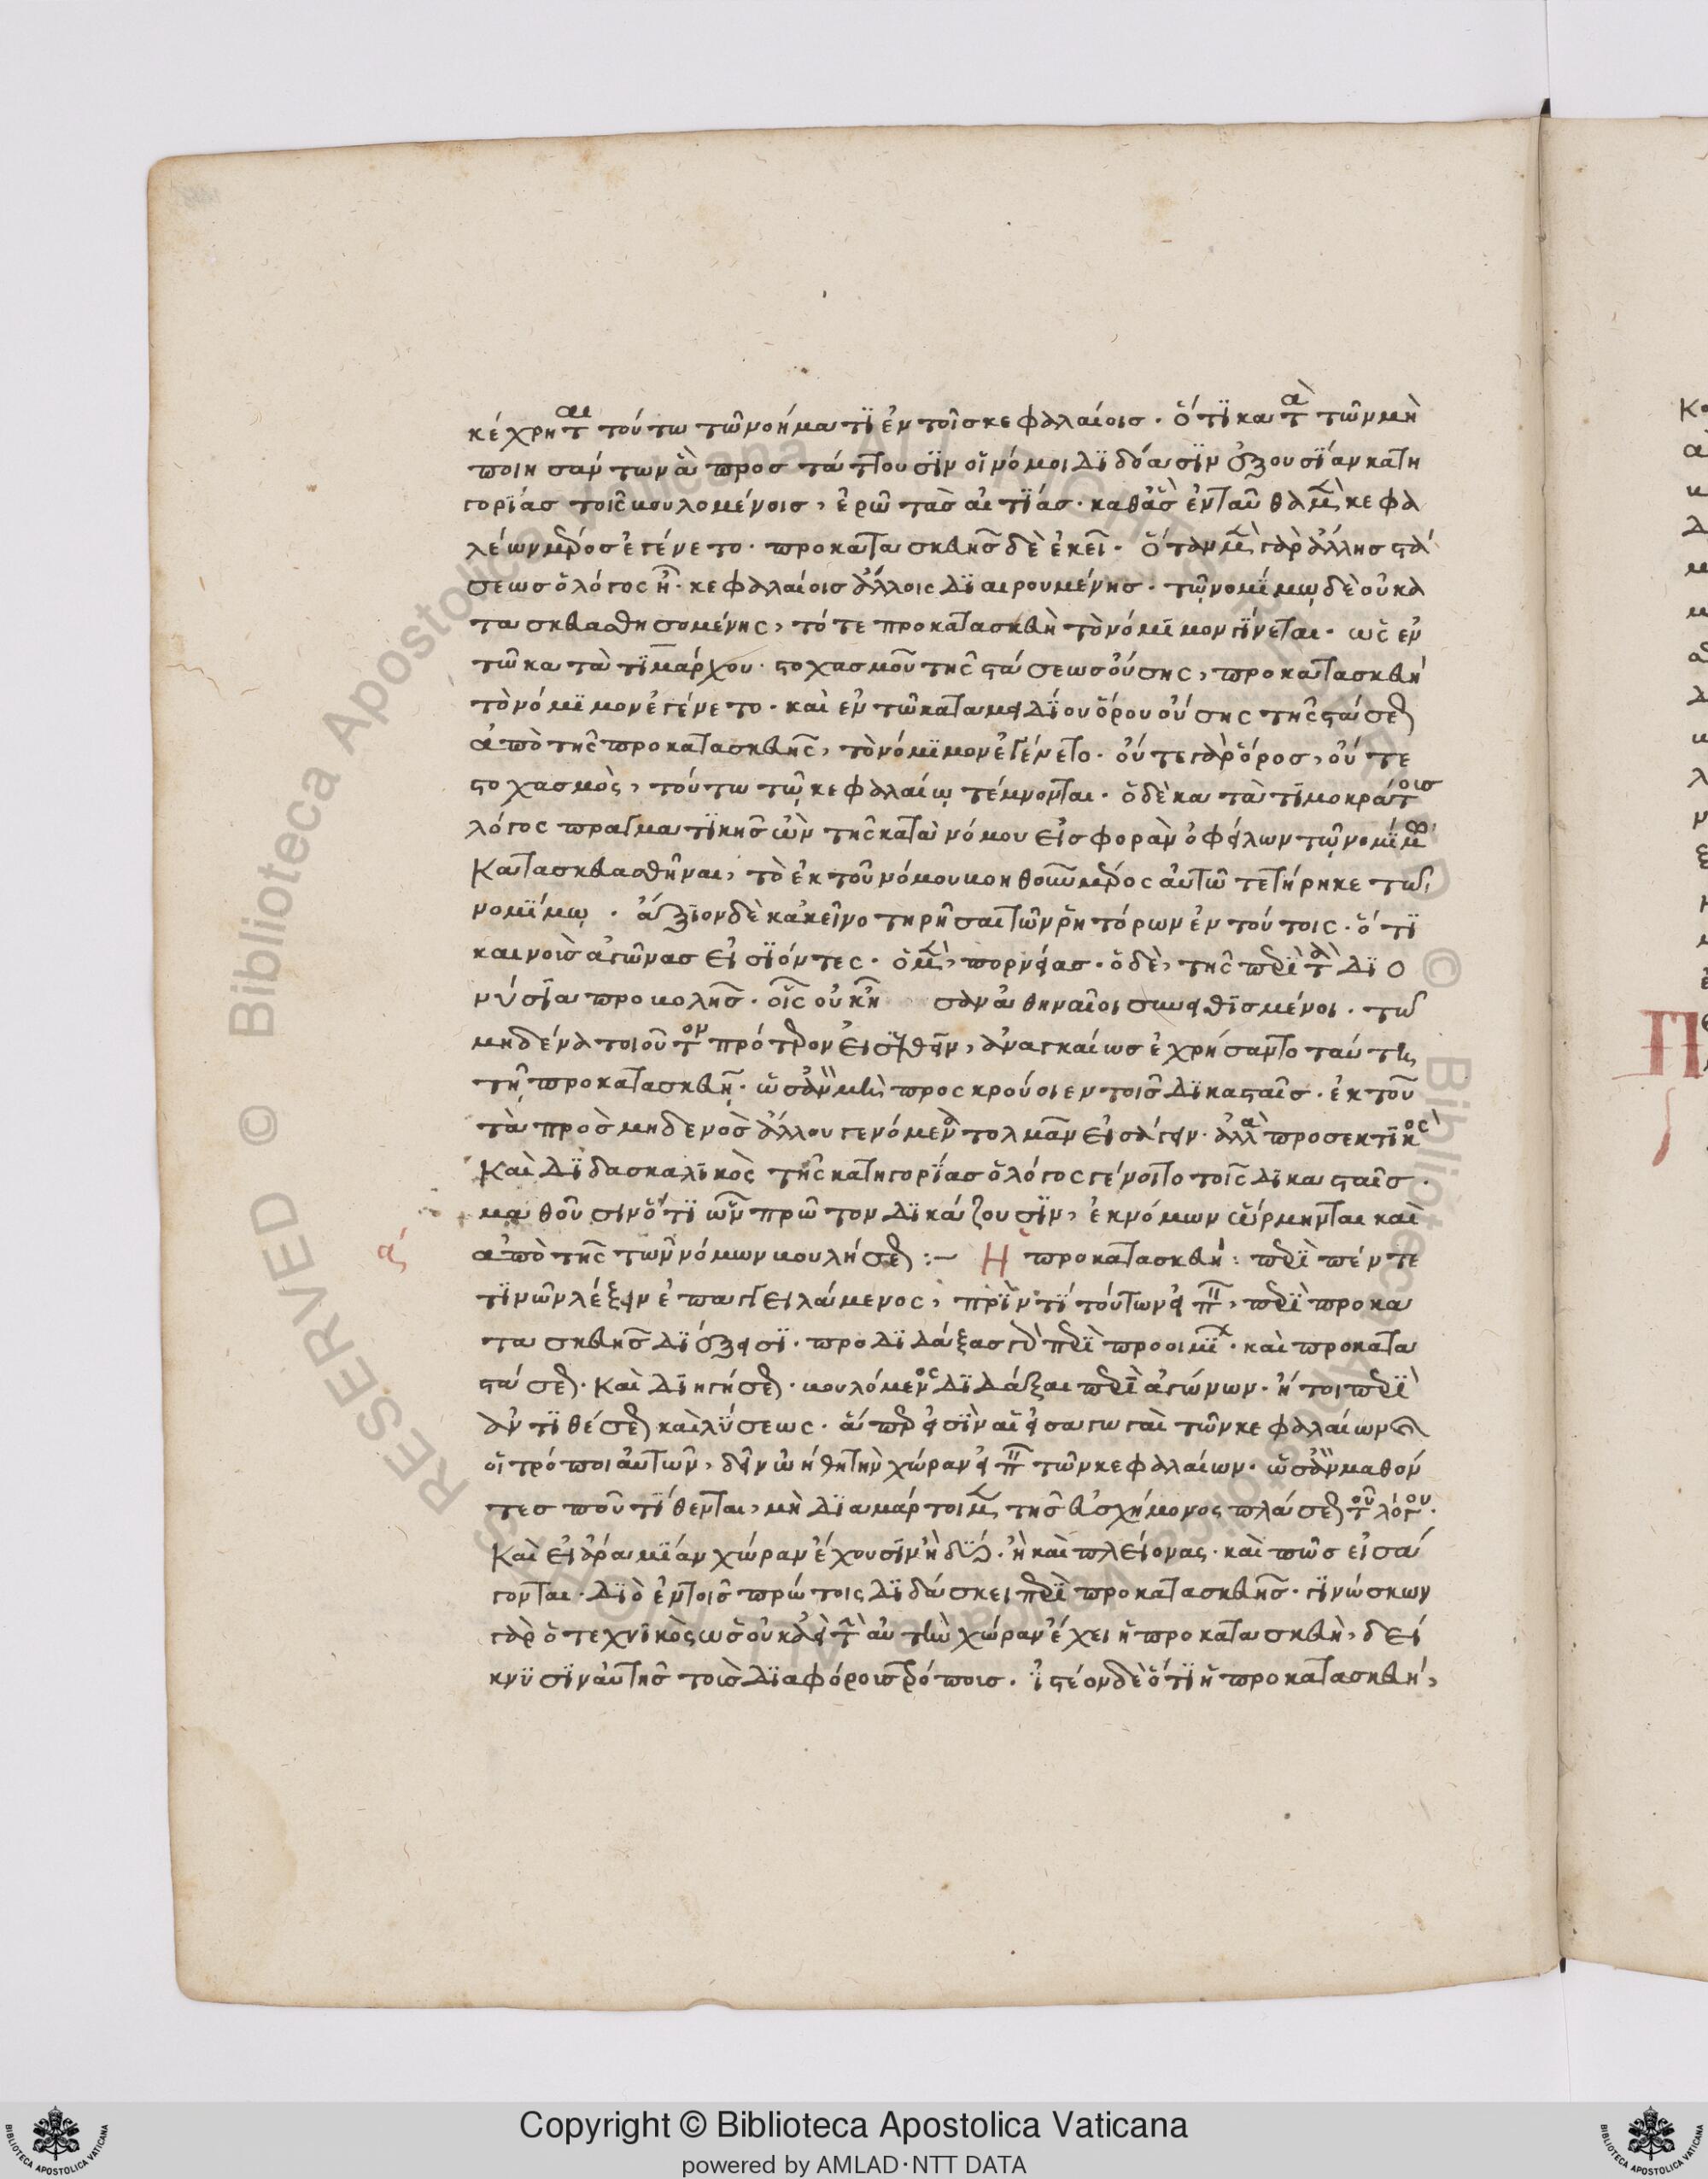 κέχρηται τούτω τῶ νοήματι ἐν τοῖς κεφαλαίοις. ὅτι κατὰ τῶν μὴ
ποιησάντων ἃ προστάττουσιν οἱ νόμοι διδόασιν ἐξουσίαν κατη
γορίας τοῖς βουλομένοις, ἐρῶ τὰς αἰτίας. καθὰς ἐνταῦθα μὲν κεφα
λέων μέρος ἐγένετο. προκατασκευῆς δὲ ἐκεῖ. ὅταν μὲν γὰρ ἄλλης στά
σεως ὁ λόγος ἦ. κεφαλαίοις ἄλλοις διαιρουμένης. τῶ νομίμω δὲ οὐ κα
τασκευασθησομένης, τότε προκατασκευὴ τὸ νόμιμον γίνεται. ὡς ἐν
τῶ κατὰ τιμάρχου. στοχασμοῦ τῆς στάσεως οὔσης, προκατασκευὴ
τὸ νόμιμον ἐγένετο. καὶ ἐν τῶ κατὰ μειδίου ὅρου οὔσης τῆς στάσεως
ἀπὸ τῆς προκατασκευῆς, τὸ νόμιμον ἐγένετο. οὔτε γὰρ ὅρος, οὔτε
στοχασμὸς, τούτω τῶ κεφαλαίω τέμνονται. ὁ δὲ κατὰ τιμοκράτους
λόγος πραγματικῆς ὢν τῆς κατὰ νόμου εἰσφορὰν ὀφείλων τῶ νομίμω
κατασκευασθῆναι, τὸ ἐκ τοῦ νόμου βοηθοῦν μέρος αὐτῶ τετήρηκε τῶ
νομίμω. ἄξιον δὲ κἀκεῖνο τηρῆσαι τῶν ῥητόρων ἐν τούτοις. ὅτι
καινοὶς ἀγῶνας εἰσιόντες. ὁ μὲν, πορνείας. ὁ δὲ, τῆς περὶ τὰ διο
νύσια προβολῆς. οἷς οὐκ ἦ σαν ἀθηναῖοι συνειθισμένοι. τῶ
μηδένα τοιοῦτον πρότερον εἰσελθεῖν, ἀναγκαίως ἐχρήσαντο ταύτη
τῆ προκατασκευῆ. ὡς ἂν μὴ προσκρούοιεν τοῖς δικασταῖς. ἐκ τοῦ
τὰ πρὸς μηδενὸς ἄλλου γενόμενα τολμᾶν εἰσάγειν. ἀλλὰ προσεκτικὸς
καὶ διδασκαλικὸς τῆς κατηγορίας ὁ λόγος γένοιτο τοῖς δικασταῖς.
μαθοῦσιν ὅτι ὧν πρῶτον δικάζουσιν, ἐκ νόμων ὥρμηνται καὶ
ἀπὸ τῆς τῶν νόμων βουλήσεως :– Ἡ προκατασκευή : περὶ πέντε
τινῶν λέξειν ἐπαγγειλάμενος, πρὶν τι τούτων εἰπεῖν, περὶ προκα
τασκευῆς διέξεισι. προδιδάξας γὰρ περὶ προοιμίων. καὶ προκατα
στάσεως. καὶ διηγήσεως. βουλόμενος διδάξαι περὶ ἀγώνων. ἤτοι περὶ
ἀντιθέσεως καὶ λύσεως. ἅπερ εἰσὶν αἱ εἰσαγωγαὶ τῶν κεφαλαίων
οἱ τρόποι αὐτῶν, δεῖν ὠήθη τὴν χώραν εἰπεῖν τῶν κεφαλαίων. ὡς ἂν μαθόν
τες ποῦ τίθενται, μὴ διαμάρτοιμεν τῆς εὐσχήμονος πλάσεως τοῦ λόγου.
καὶ εἰ ἄρα μίαν χώραν ἔχουσιν ἢ δύο. ἢ καὶ πλείονας. καὶ πῶς εἰσά
γονται. διὸ ἐν τοῖς πρώτοις διδάσκει περὶ προκατασκευῆς. γινώσκων
γὰρ ὁ τεχνικὸς ὡς οὐκ ἀεὶ τὴν αὐτὴν χώραν ἔχει ἡ προκατασκευὴ, δεί
κνυσιν αὐτῆς τοὶς διαφόροις τρόποις. ἰστέον δὲ ὅτι ἡ προκατασκευή,